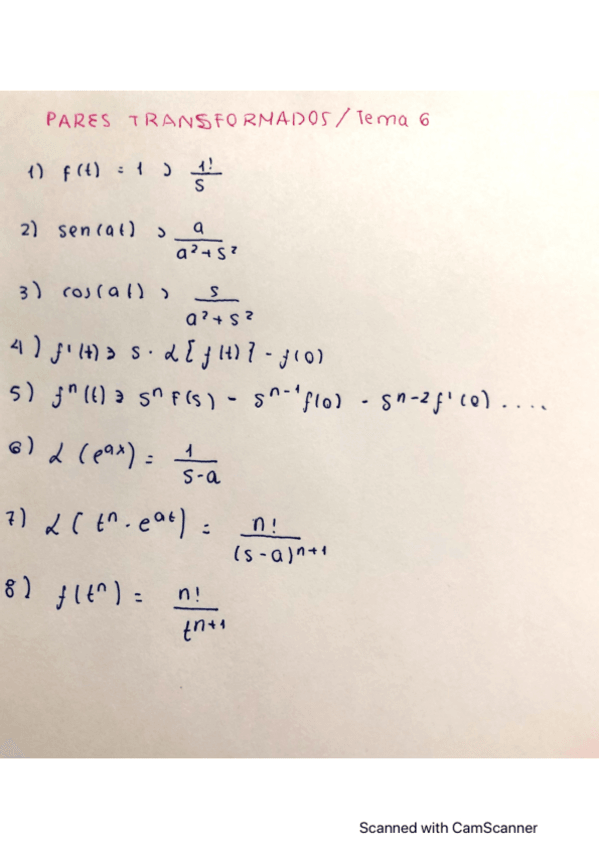 PARES TRANSFORMADOS / Tema 6
1) f(t) = 1 ⊃ 1!/s
2) sen(at) ⊃ a/(a²+s²)
3) cos(at) ⊃ s/(a²+s²)
4) f'(t) ⊃ s · L{f(t)} - f(0)
5) fⁿ(t) ⊃ sⁿ F(s) - sⁿ⁻¹ f(0) - sⁿ⁻² f'(0) ....
6) L(eᵃˣ) = 1/(s-a)
7) L(tⁿ · eᵃᵗ) = n!/(s-a)ⁿ⁺¹
8) f(tⁿ) = n!/tⁿ⁺¹
Scanned with CamScanner